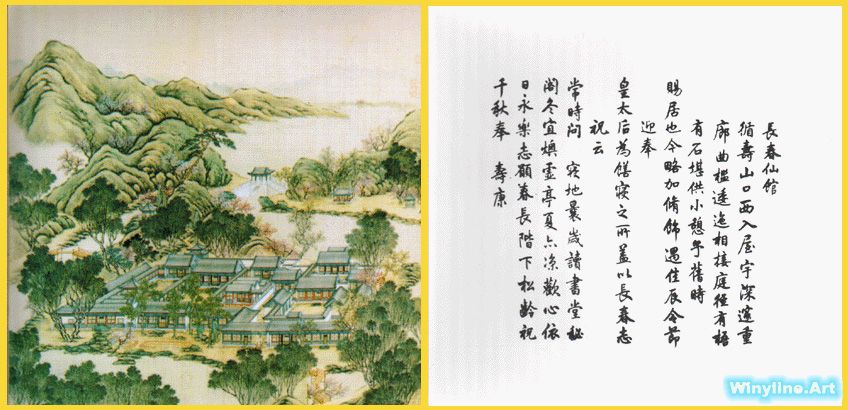 長春仙館
循壽山口西入屋宇深邃重
廊曲檻逶迤相接庭徑有梧
有石堪供小憩予舊時
賜居也今略加脩飾遇佳辰令節
迎奉
皇太后為膳寢之所蓋以長春志
祝云
常時問 寢地曩歲讀書堂秘
閣冬宜燠虛亭夏亦涼歡心依
日永樂志願春長階下松齡祝
千秋奉 壽康
Winyline.Art